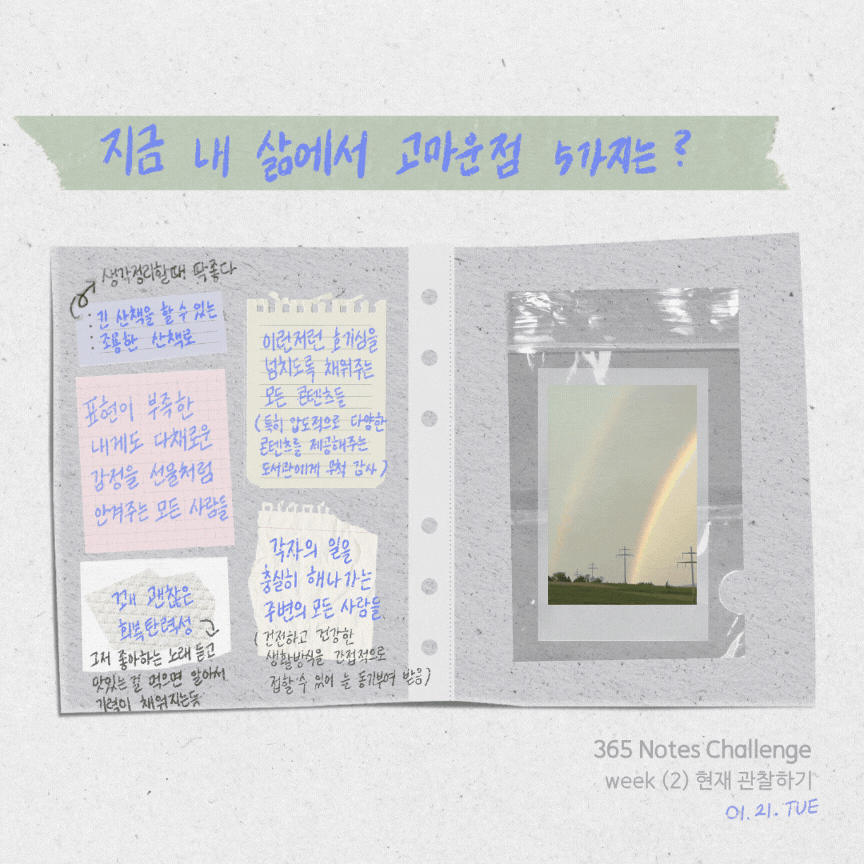 지금 내 삶에서 고마운점 5가지는?
생각정리할때 딱좋다
: 긴 산책을 할 수 있는
: 조용한 산책로
표현이 부족한
내게도 다채로운
감정을 선물처럼
안겨주는 모든 사람들
꽤 괜찮은
회복탄력성
그저 좋아하는 노래 듣고
맛있는걸 먹으면 알아서
기력이 채워지는듯
이런저런 호기심을
넘치도록 채워주는
모든 콘텐츠들
(특히 압도적으로 다양한
콘텐츠를 제공해주는
도서관에게 무척 감사)
각자의 일을
충실히 해나가는
주변의 모든 사람들
(건전하고 건강한
생활방식을 간접적으로
접할 수 있어 늘 동기부여 받음)
365 Notes Challenge
week (2) 현재 관찰하기
01. 21. TUE